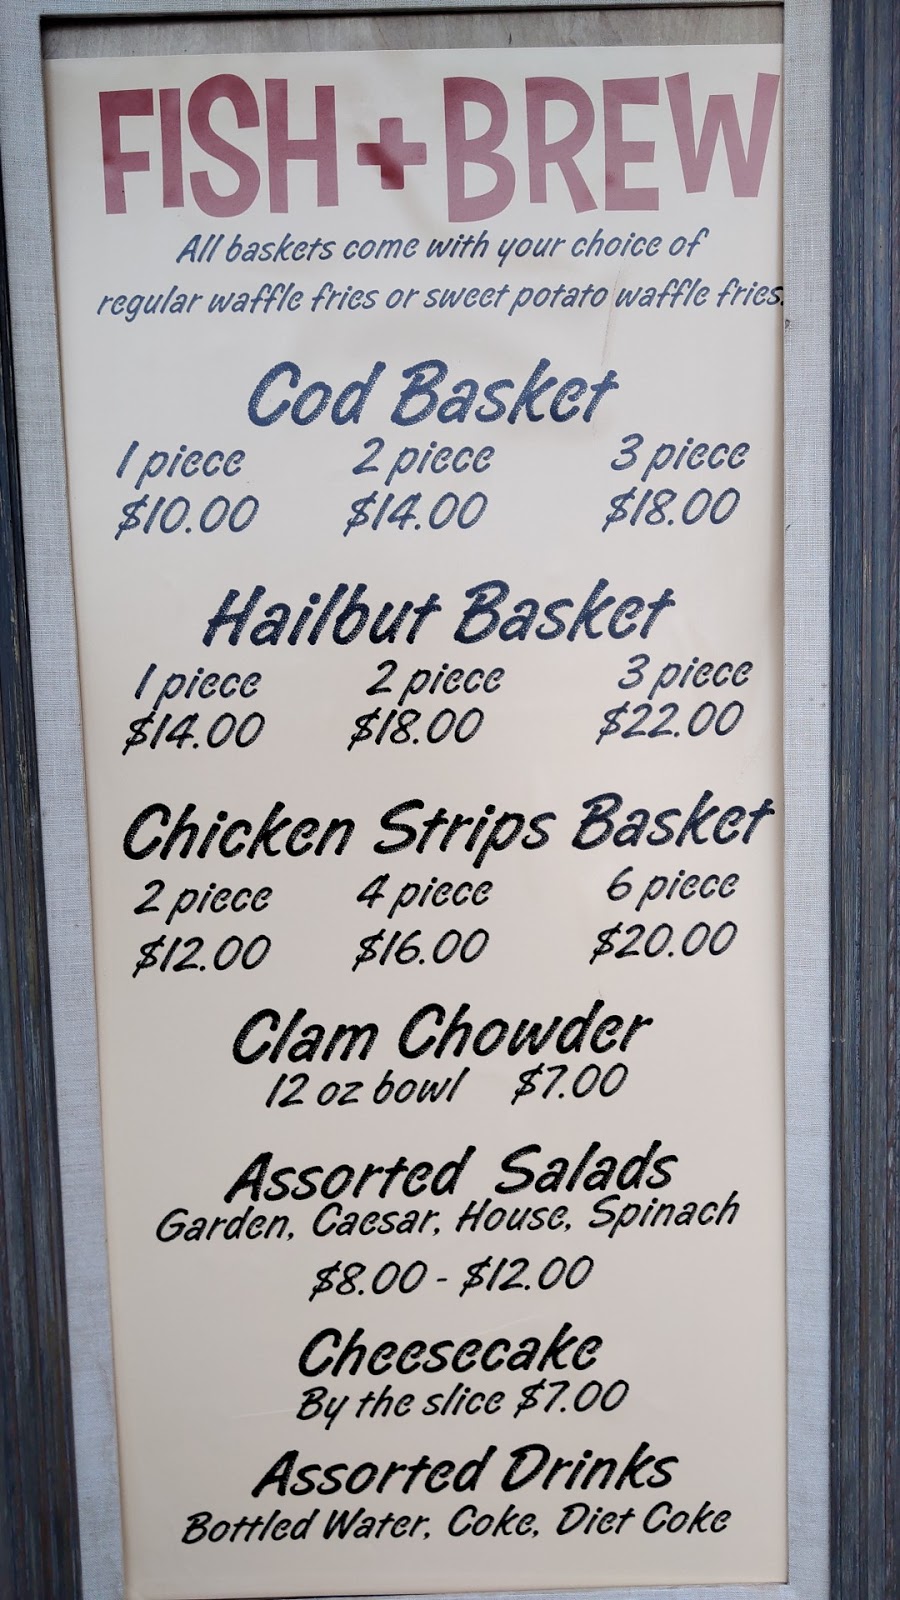 FISH + BREW
All baskets come with your choice of
regular waffle fries or sweet potato waffle fries.
Cod Basket
1 piece 2 piece 3 piece
$10.00 $14.00 $18.00
Hailbut Basket
1 piece 2 piece 3 piece
$14.00 $18.00 $22.00
Chicken Strips Basket
2 piece 4 piece 6 piece
$12.00 $16.00 $20.00
Clam Chowder
12 oz bowl $7.00
Assorted Salads
Garden, Caesar, House, Spinach
$8.00 - $12.00
Cheesecake
By the slice $7.00
Assorted Drinks
Bottled Water, Coke, Diet Coke